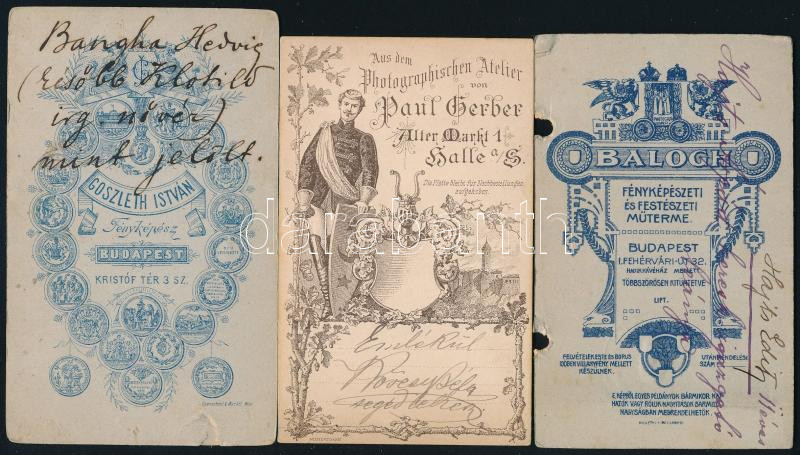 Bangha Hedvig
(később Klotild
irg nővér)
mint jelölt.
GOSZLETH ISTVÁN
Fényképész
BUDAPEST
KRISTÓF TÉR 3 SZ.
Aus dem
Photographischen Atelier
von
Paul Gerber
Alter Markt 1
Halle a/S.
Die Platte bleibt für Nachbestellungen
aufgehoben.
Emlékül
Kövesy Béla
BALOGH
FÉNYKÉPÉSZETI
ÉS FESTÉSZETI
MŰTERME.
BUDAPEST
I. FEHÉRVÁRI-ÚT 32.
HADIK KÁVÉHÁZ MELLETT
TÖBBSZÖRÖSEN KITÜNTETVE
LIFT.
FELVÉTELEK ESTE ÉS BORUS
IDŐBEN VILLANYFÉNY MELLETT
KÉSZÜLNEK.
UTÁNRENDELÉSI
SZÁM
E KÉPRŐL EGYES PÉLDÁNYOK BÁRMIKOR
HATÓK VAGY RÓLUK NAGYÍTÁSOK BÁRMILY
NAGYSÁGBAN MEGRENDELHETŐK.
Hajts Edit
darabanth